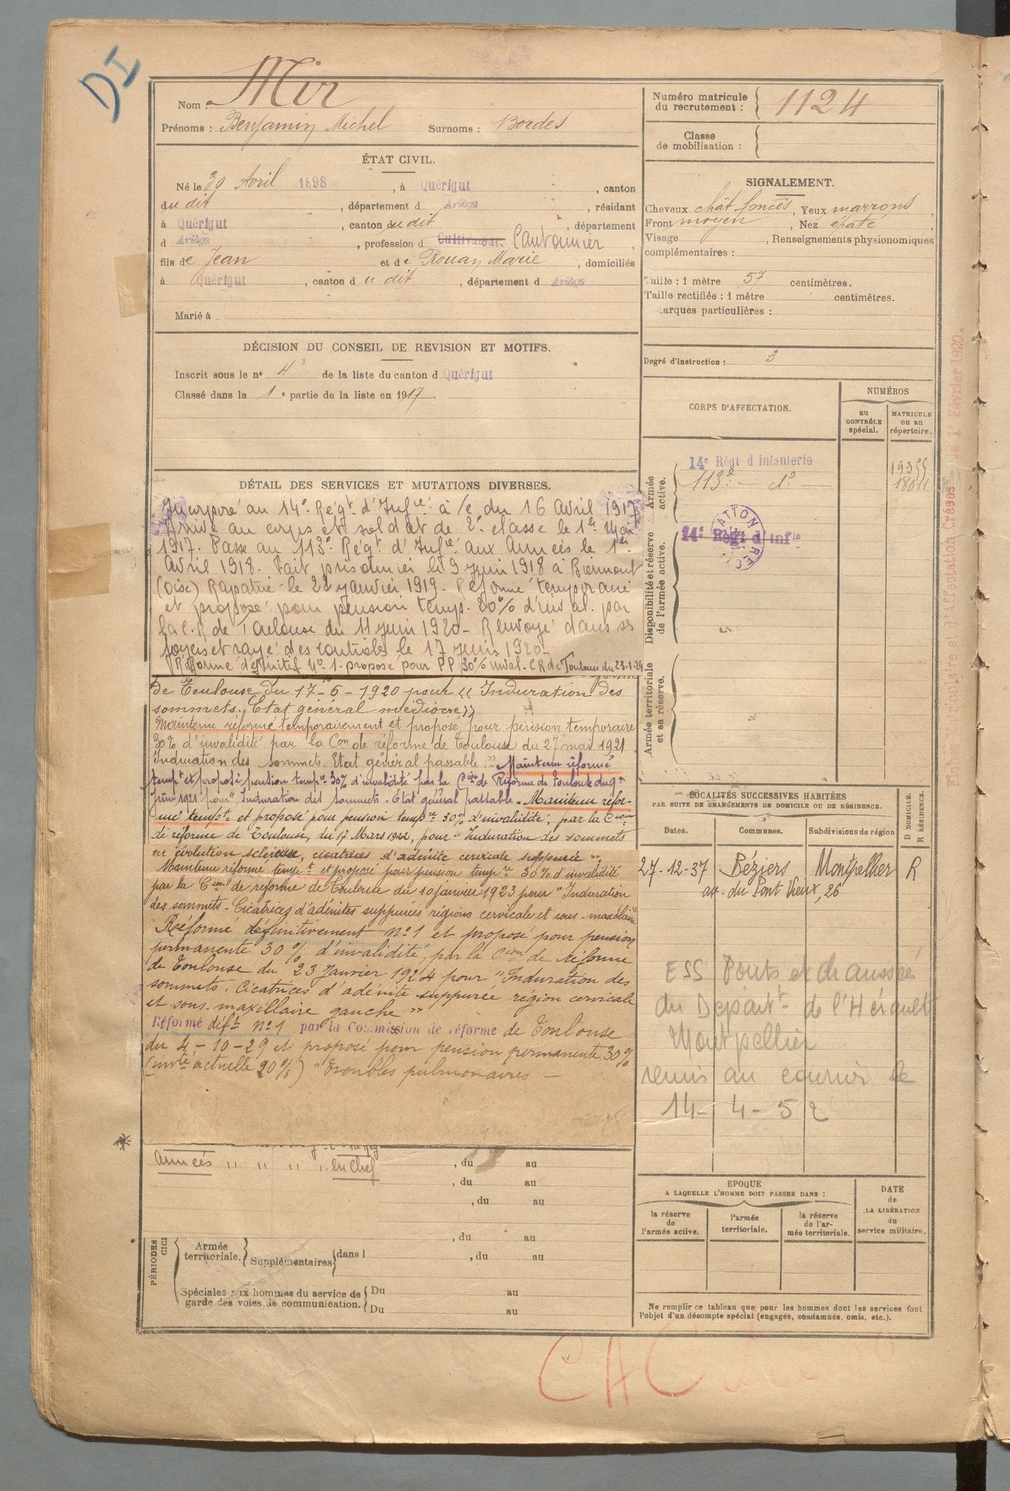 DI
Nom : Mir
Prénoms : Benjamin Michel Surnoms : Bordes
ÉTAT CIVIL.
Né le 30 Avril 1898, à Quérigut, canton
du dit, département d Ariège, résidant
à Quérigut, canton du dit, département
d Ariège, profession d Cultivateur. Cantonnier,
fils de Jean et de Rouan Marie, domiciliés
à Quérigut, canton du dit, département d Ariège
Marié à
DÉCISION DU CONSEIL DE REVISION ET MOTIFS.
Inscrit sous le n° 4 de la liste du canton d Quérigut
Classé dans la 1e partie de la liste en 1917.
DÉTAIL DES SERVICES ET MUTATIONS DIVERSES.
Incorporé au 14e Régt d'Infie à/c du 16 Avril 1917
Arrivé au corps et soldat de 2e classe le 1er Mai
1917. Passé au 113e Régt d'Infie aux Armées le 1er
Avril 1918. Fait prisonnier le 9 juin 1918 à
(Oise) Rapatrié le 22 janvier 1919. Réformé temporaire
et proposé pour pension temp. 30% d'inval. par
la C.R de Toulouse du 11 juin 1920 - Renvoyé dans ses
foyers et rayé des contrôles le 17 juin 1920
Réformé définitif n° 1 - proposé pour PP 30% inval. CR de Toulouse du 23-1-24
de Toulouse du 17-6-1920 pour "Induration des
sommets. Etat général médiocre"
Maintenu réformé temporairement et proposé pour pension temporaire
30% d'invalidité par la Con de réforme de Toulouse du 27 mai 1921
Induration des sommets. Etat général passable." Maintenu réformé
tempt et proposé pension tempre 30% d'invalidité par la Cion de Réforme de Toulouse du
1921 pour "Induration des sommets. Etat général passable. Maintenu réfor-
mé tempre et proposé pour pension tempre 30% d'invalidité, par la Cion
de réforme de Toulouse, du 17 Mars 1922, pour "Induration des sommets
en évolution scléreuse, cicatrices d'adénite cervicale suppurée".
Maintenu réformé tempt et proposé pour pension tempre 30% d'invalidité
par la Cion de réforme de Toulouse du 10 janvier 1923 pour "Induration
des sommets - Cicatrices d'adénites suppurées régions cervicale et sous-maxillaire
Réformé définitivement n° 1 et proposé pour pension
permanente 30%, d'invalidité, par la Cion de réforme
de Toulouse du 23 Janvier 1924 pour "Induration des
sommets. Cicatrices d'adénite suppurée région cervicale
et sous maxillaire gauche"
Réformé défit N° 1 par la Commission de réforme de Toulouse
du 4-10-29 et proposé pour pension permanente 30%
(invté actuelle 20%) "Troubles pulmonaires -
Armées " " " " en chef, du au
, du au
, du au
, du au
PÉRIODES
Armée territoriale. Supplémentaires dans l , du au
Spéciales aux hommes du service de garde des voies de communication. Du au
Du au
Numéro matricule du recrutement : 1124
Classe de mobilisation :
SIGNALEMENT.
Cheveux chât. foncés, Yeux marrons,
Front moyen, Nez épaté,
Visage , Renseignements physionomiques
complémentaires :
Taille : 1 mètre 57 centimètres.
Taille rectifiée : 1 mètre centimètres.
arques particulières :
Degré d'instruction : 3
CORPS D'AFFECTATION.
NUMÉROS
au CONTRÔLE spécial.
MATRICULE OU AU répertoire.
Armée active.
14e Régt d'infanterie
113e - do -
Disponibilité et réserve de l'armée active.
14e Régt d'Infie
Armée territoriale et sa réserve.
LOCALITÉS SUCCESSIVES HABITÉES
PAR SUITE DE CHANGEMENTS DE DOMICILE OU DE RÉSIDENCE.
Dates. Communes. Subdivisions de région D DOMICILE. R RÉSIDENCE.
27-12-37 Béziers Montpellier R
av. du Pont Vieux, 26
ESS Ponts et chaussées
du Départt de l'Hérault
Montpellier
remis au courrier le
14-4-52
EPOQUE
A LAQUELLE L'HOMME DOIT PASSER DANS :
la réserve de l'armée active.
l'armée territoriale.
la réserve de l'armée territoriale.
DATE de LA LIBÉRATION du service militaire.
Ne remplir ce tableau que pour les hommes dont les services font
l'objet d'un décompte spécial (engagés, condamnés, omis, etc.).
CAC